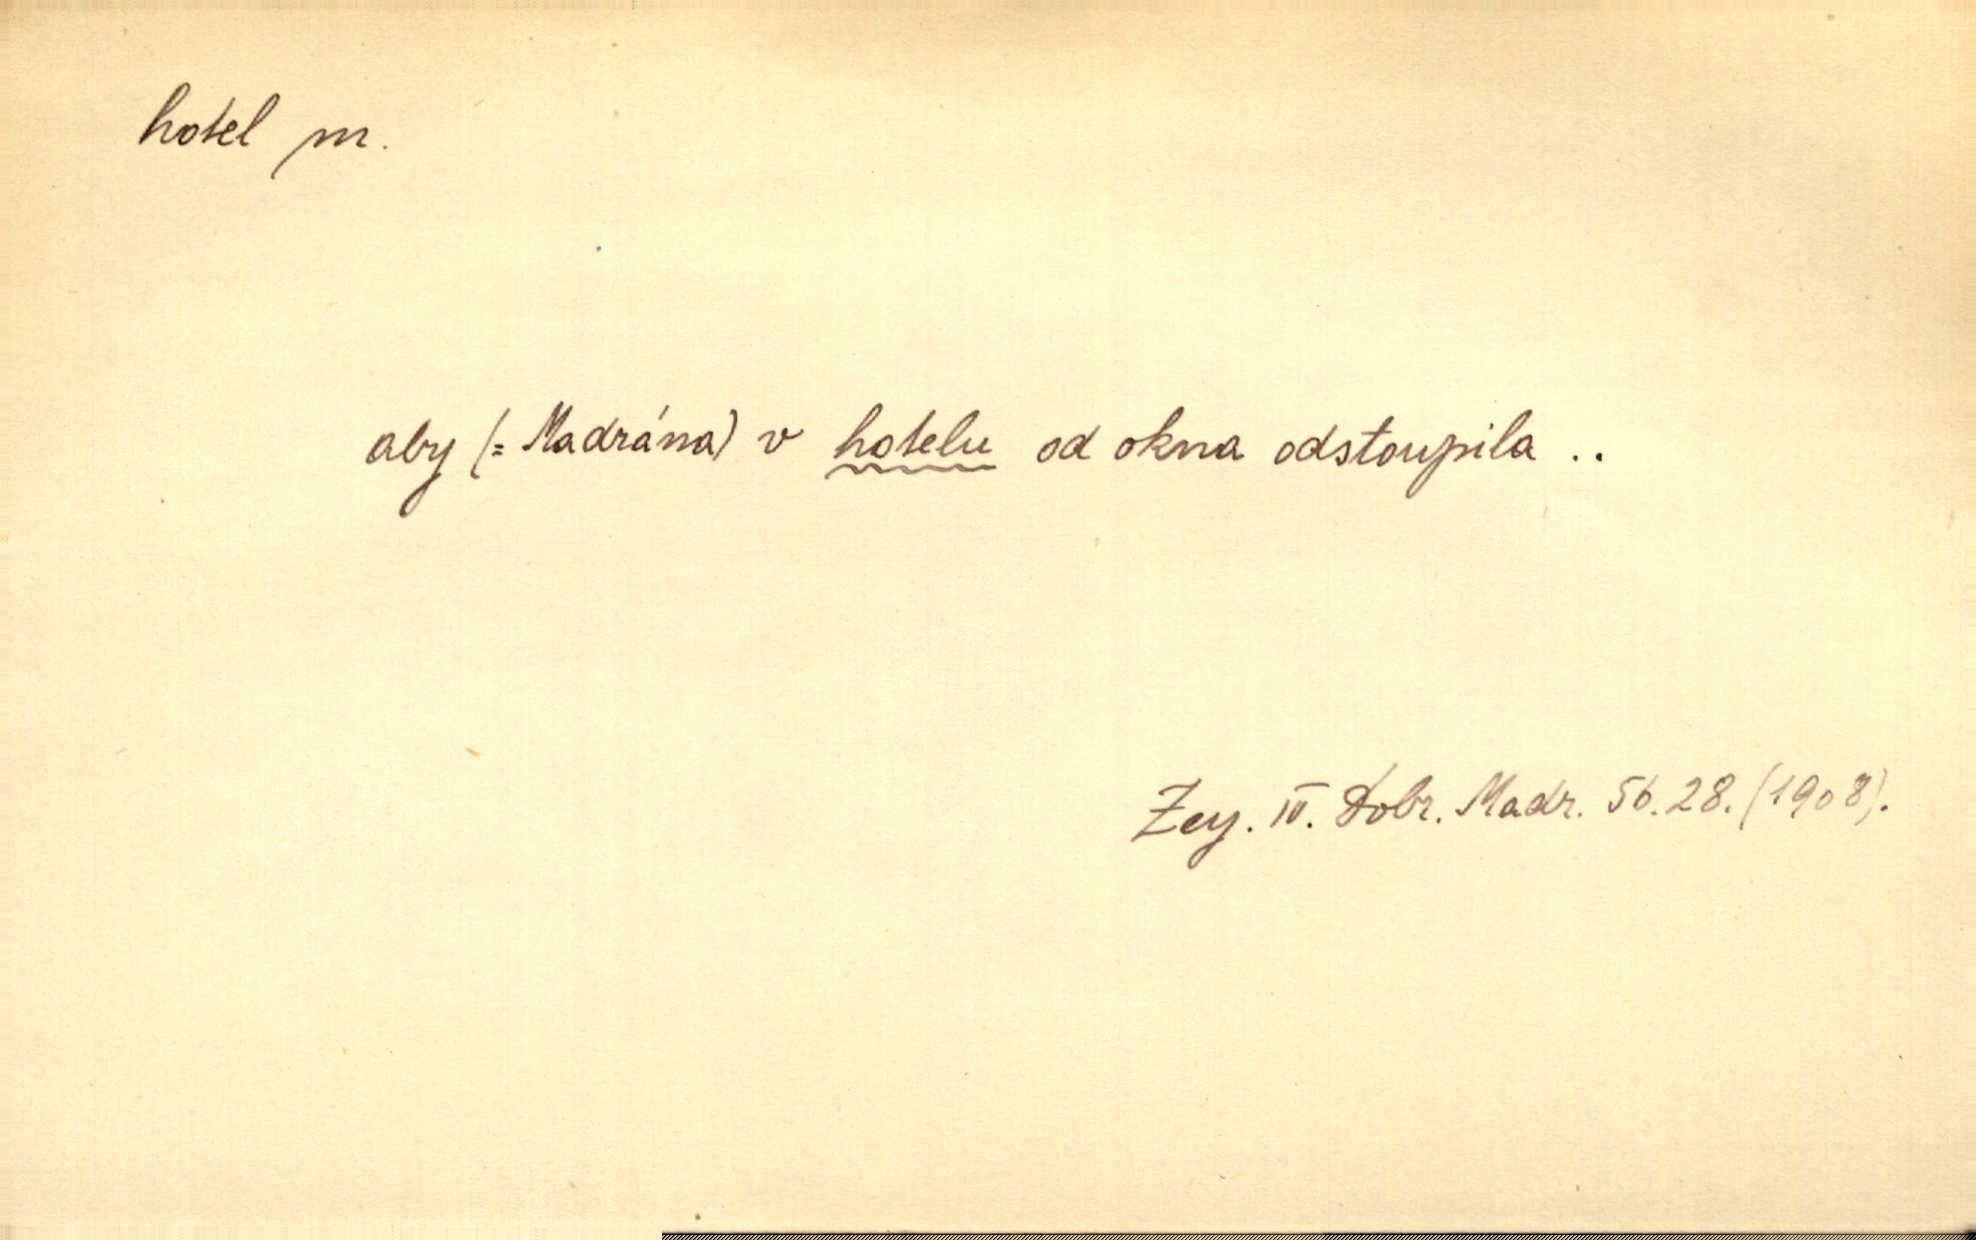 hotel m.
aby (= Madrána) v hotelu od okna odstoupila ..
Zey. IV. Dobr. Madr. 56.28. (1908).